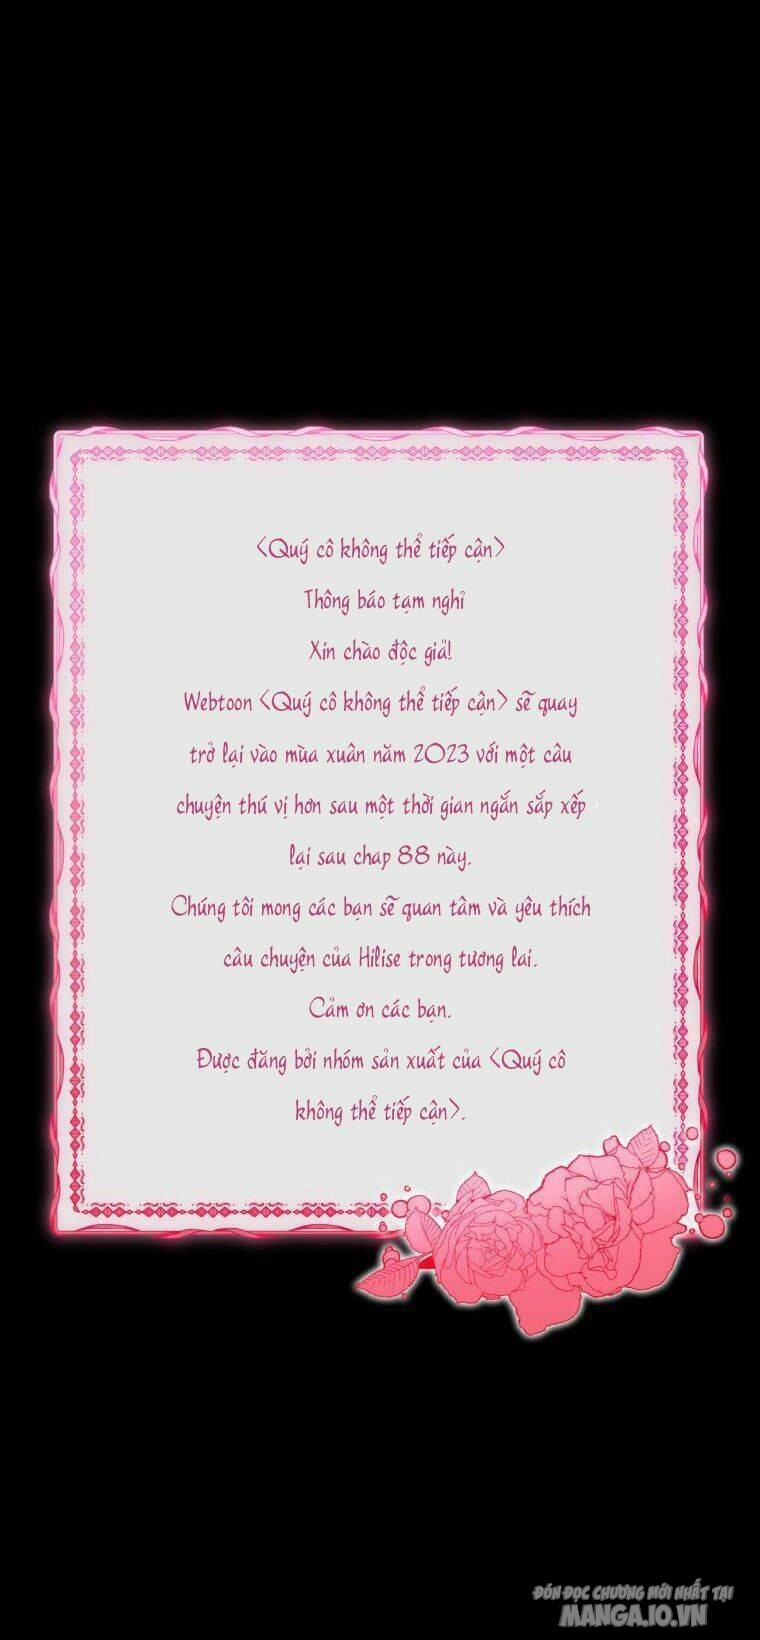 <Quý cô không thể tiếp cận>
Thông báo tạm nghỉ
Xin chào độc giả!
Webtoon <Quý cô không thể tiếp cận> sẽ quay
trở lại vào mùa xuân năm 2023 với một câu
chuyện thú vị hơn sau một thời gian ngắn sắp xếp
lại sau chap 88 này.
Chúng tôi mong các bạn sẽ quan tâm và yêu thích
câu chuyện của Hilise trong tương lai.
Cảm ơn các bạn.
Được đăng bởi nhóm sản xuất của <Quý cô
không thể tiếp cận>.
ĐÓN ĐỌC CHƯƠNG MỚI NHẤT TẠI
MANGA.IO.VN